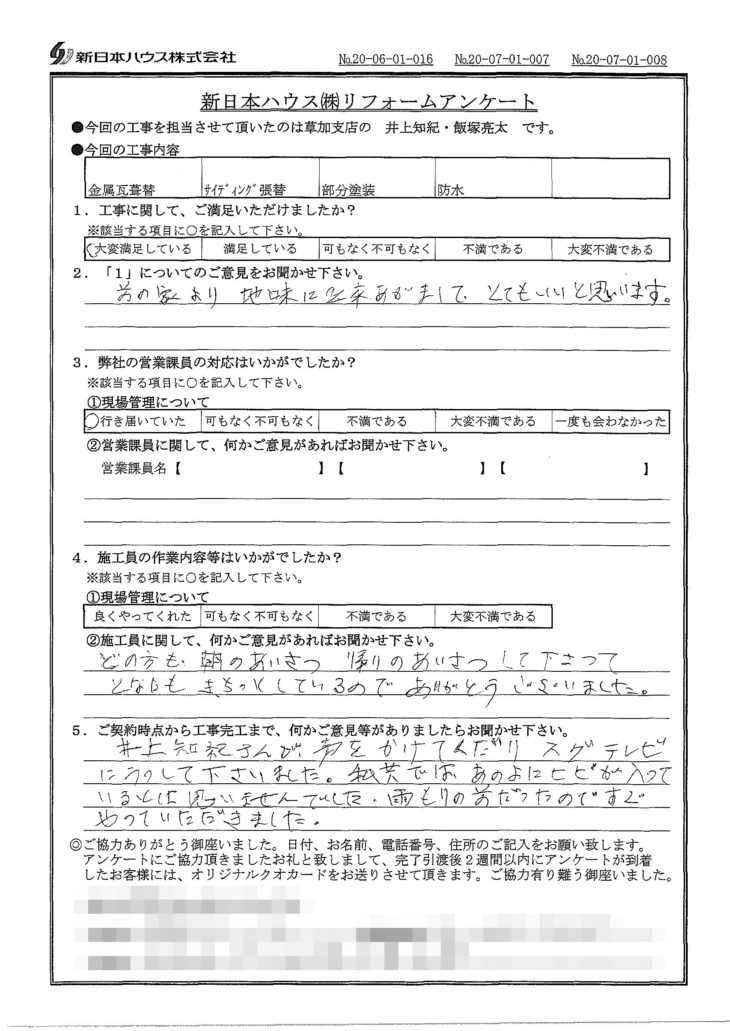 新日本ハウス株式会社 No.20-06-01-016 No.20-07-01-007 No.20-07-01-008
新日本ハウス㈱リフォームアンケート
●今回の工事を担当させて頂いたのは草加支店の 井上知紀・飯塚亮太 です。
●今回の工事内容
金属瓦葺替 ｻｲﾃﾞｨﾝｸﾞ張替 部分塗装 防水
1．工事に関して、ご満足いただけましたか？
※該当する項目に○を記入して下さい。
○大変満足している 満足している 可もなく不可もなく 不満である 大変不満である
2．「1」についてのご意見をお聞かせ下さい。
前の家より 地味に出来あがまして、とてもいいと思います。
3．弊社の営業課員の対応はいかがでしたか？
※該当する項目に○を記入して下さい。
①現場管理について
○行き届いていた 可もなく不可もなく 不満である 大変不満である 一度も会わなかった
②営業課員に関して、何かご意見があればお聞かせ下さい。
営業課員名【 】【 】【 】
4．施工員の作業内容等はいかがでしたか？
※該当する項目に○を記入して下さい。
①現場管理について
良くやってくれた 可もなく不可もなく 不満である 大変不満である
②施工員に関して、何かご意見があればお聞かせ下さい。
どの方も、朝のあいさつ 帰りのあいさつして下さって
となにもきちっとしているのでありがとうございました。
5．ご契約時点から工事完工まで、何かご意見等がありましたらお聞かせ下さい。
井上知紀さんが、声をかけてくだり スグテレビ
にうつして下さいました。私共では、あのよにヒビが入って
いるとは思いませんでした。雨もりの前だったのですぐ
やっていただきました。
◎ご協力ありがとう御座いました。日付、お名前、電話番号、住所のご記入をお願い致します。
アンケートにご協力頂きましたお礼と致しまして、完了引渡後２週間以内にアンケートが到着
したお客様には、オリジナルクオカードをお送りさせて頂きます。ご協力有り難う御座いました。